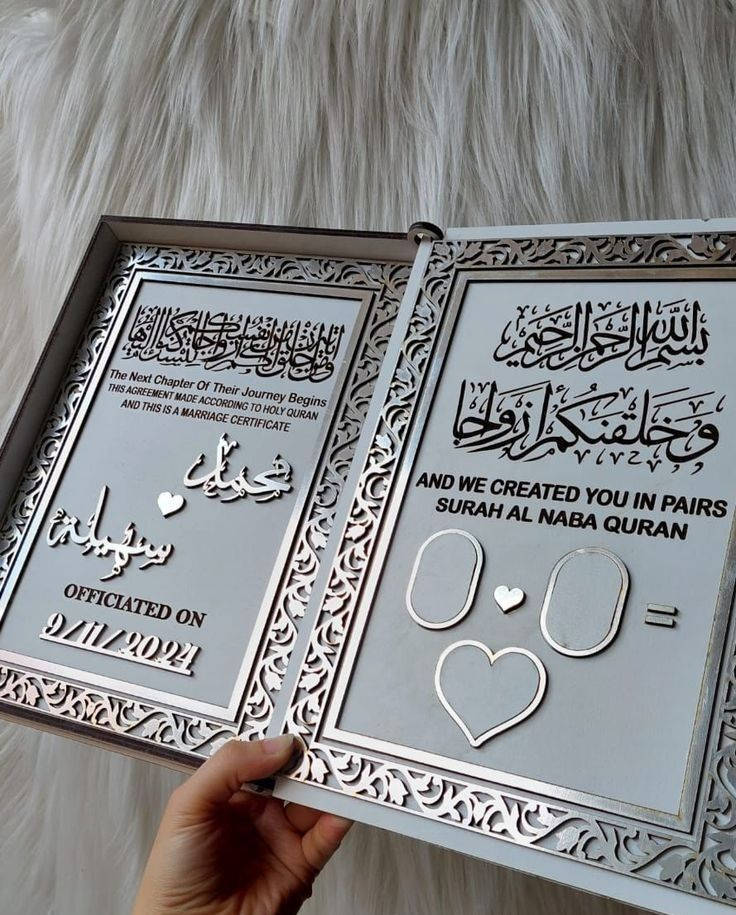 ومن آياته أن خلق لكم من أنفسكم أزواجا لتسكنوا إليها
The Next Chapter Of Their Journey Begins
THIS AGREEMENT MADE ACCORDING TO HOLY QURAN
AND THIS IS A MARRIAGE CERTIFICATE
محمد
سهيلة
OFFICIATED ON
9/11/2024
بسم الله الرحمن الرحيم
وخلقنكم أزواجا
AND WE CREATED YOU IN PAIRS
SURAH AL NABA QURAN
=